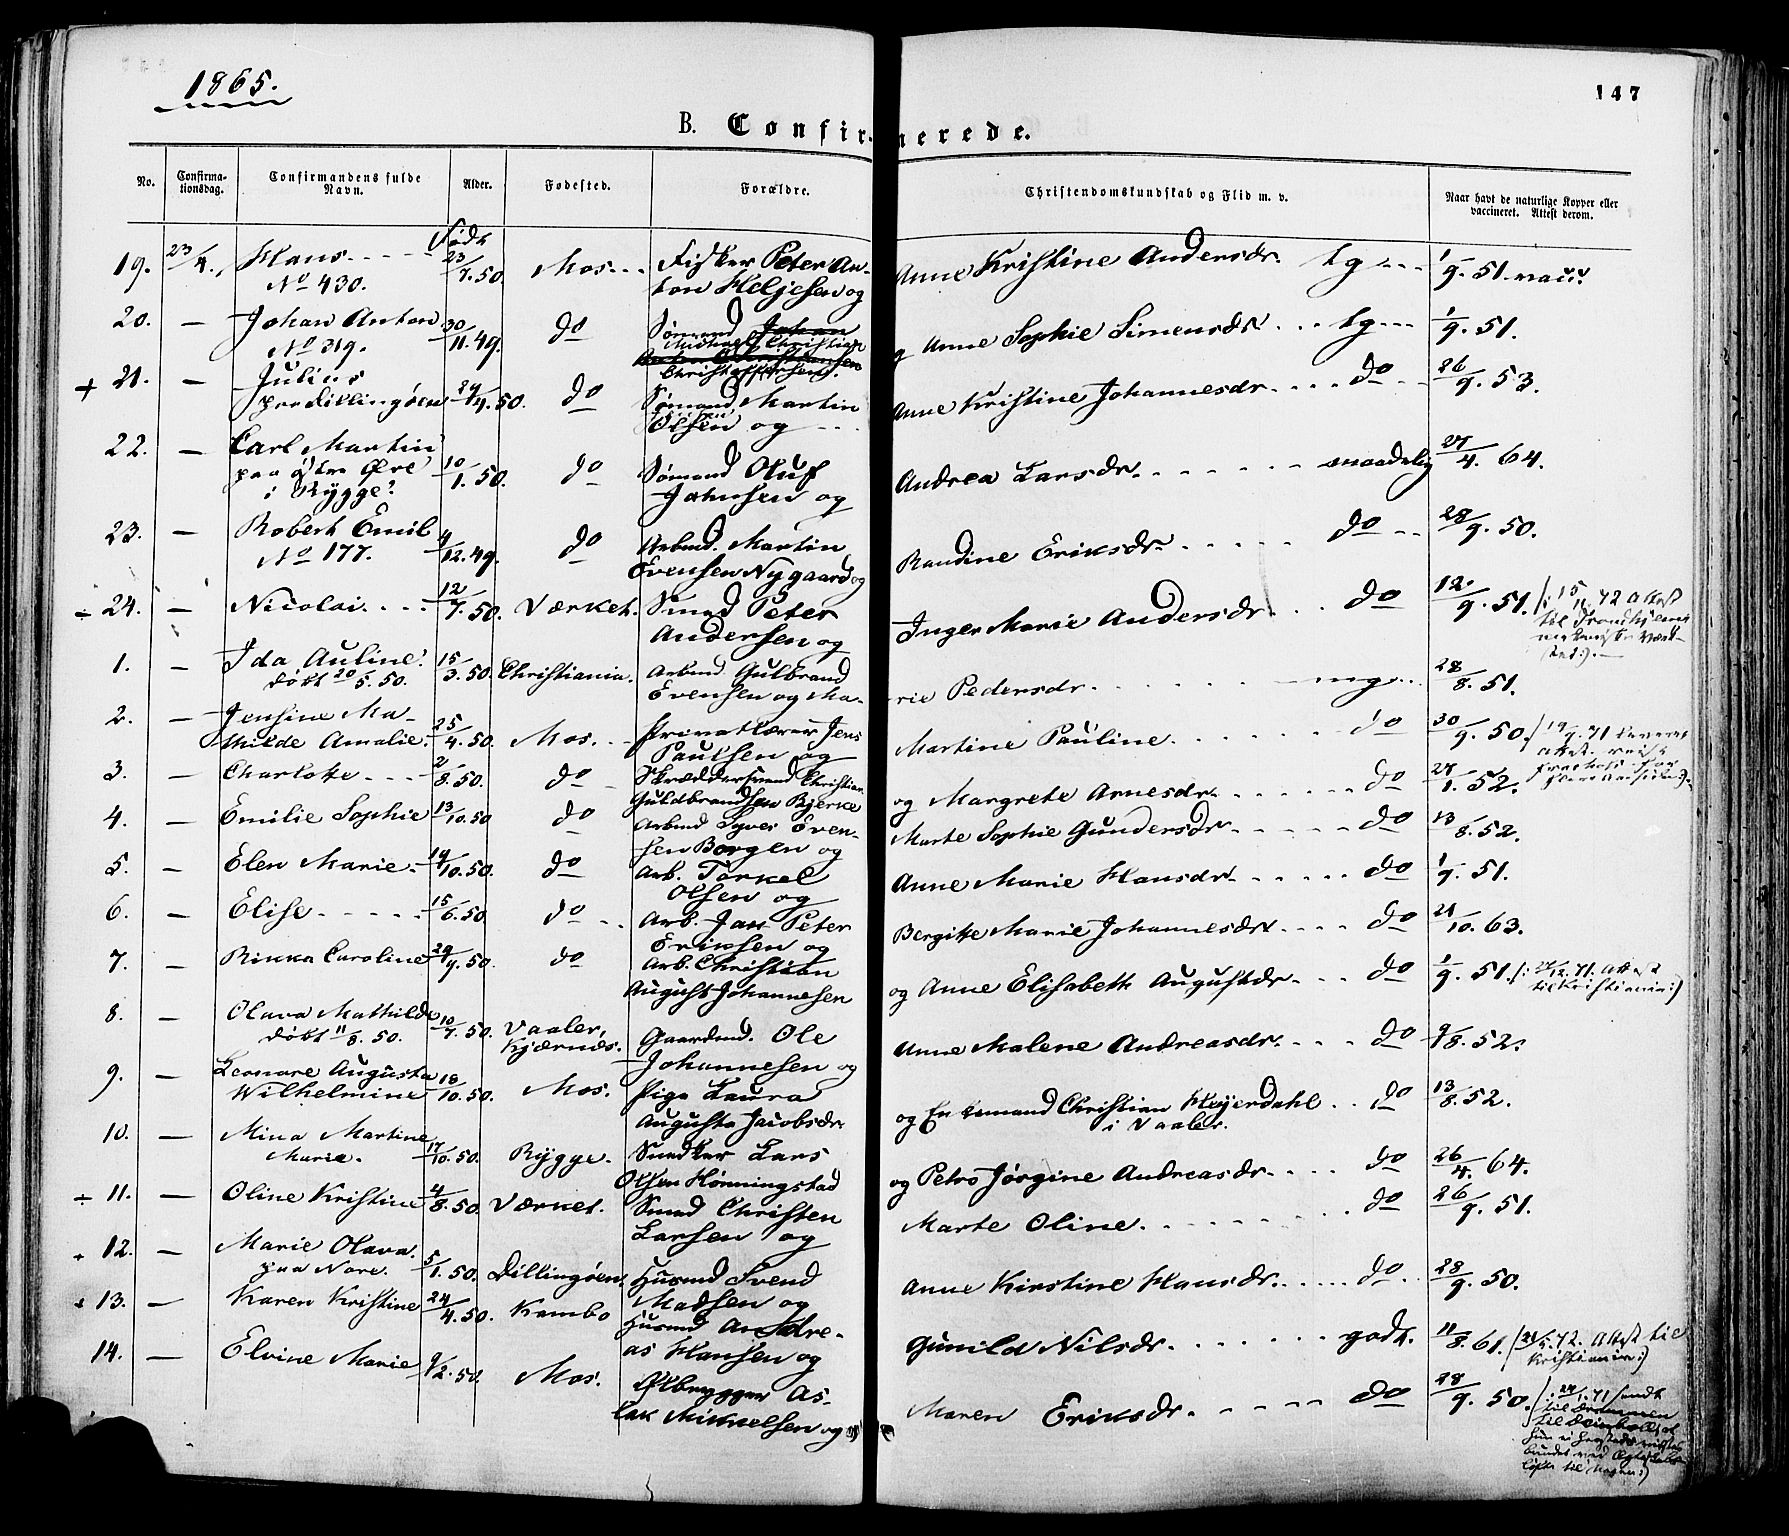 1865.
147
B. Confirmerede.
No.
Confirma-
tionsdag.
Confirmandens fulde
Navn.
Alder.
Fødested.
Forældre.
Christendomskundskab og Flid m. v.
Naar havt de naturlige Kopper eller
vaccineret. Attest derom.
Født
19. 23/4. Hans 23/7.50. Mos Fisker Peter An- Anne Kristine Andersdr. tg 1/9. 51. vacc.
No 430. ton Heljesen og
20. — Johan Anton 30/11.49. do Sømand Johan g Anne Sophie Simensdr. tg 1/9. 51.
No 319. Michael Christian
Anton Christiansen
Christoffersen.
+ 21. — Julius
paa Dillingøen 24/4.50. do Sømand Martin Anne Kristine Johannesdr. do 26/9. 53.
Olsen og
22. — Carl Martin
paa Østre Øre 10/1.50. do Sømand Oluf Andrea Larsdr. maadelig 27/4. 64.
i Rygge. Johnsen og
23. — Robert Emil 4/12.49. do Arbmd. Martin Randine Eriksdr. do 28/9. 50.
No 177. Evensen Nygaard og
÷ 24. — Nicolai 12/7.50. Værket. Smed Peter Inger Marie Andersdr. do 12/9. 51. (: 15/11. 72 Attest
Andersen og til Trondhjems
1. — Ida Auline. 15/3.50. Christiania. Arbmd Gulbrand rie Pedersdr. mg 28/8. 51.
døbt 20/5.50. Evensen og Ma-
2. — Jensine Ma-
thilde Amalie. 25/4.50. Mos. Privatlærer Jens Martine Pauline. do 30/9. 50. (19/9.71 leveret
Paulsen og attest
3. — Charlotte 2/8.50. do Skræddersvend Christian og Margrete Arnesdr. do 27/1. 52.
Guldbrandsen Bjerke
4. — Emilie Sophie 13/10.50 do Arbmd Syver Even- Marte Sophie Gundersdr. do 13/8. 52.
sen Borgen og
5. — Elen Marie 19/10.50. do Arb. Torkel Anne Marie Hansdr. do 1/9. 51.
Olsen og
6. — Elise 15/6.50 do Arb. Jan Peter Bergitte Marie Johannesdr. do 21/10. 63.
Eriksen og
7. — Rikka Caroline 29/9.50. do Arb. Christian og Anne Elisabeth Augustdr. do 1/9. 51. (: 24/12. 71. Attest
August Johannesen til Kristiania:)
8. — Olava Mathilde 10/7.50. Vaaler, Gaardmd. Ole Anne Malene Andreasdr. do 9/8. 52.
døbt 11/8. 50. Kjærnes. Johannesen og
9. — Leonore Augusta
Wilhelmine 18/10.50. Mos. Pige Laura og Enkemand Christian Heyerdahl do 13/8. 52.
Augusta Jacobsdr. i Vaaler.
10. — Mina Martine
Marie. 17/10.50. Rygge. Snedker Lars og Petro Jørgine Andreasdr. do 26/4. 64.
Olsen Hønningstad
÷ 11. — Oline Kristine 4/8.50. Værket. Smed Christen Marte Oline. do 26/9. 51.
Larsen og
+ 12. — Marie Olava.
paa Nore. 5/1.50. Dillingøen. Husmd Svend Anne Kirstine Hansdr. do 28/9. 50.
Madsen og
+ 13. — Karen Kristine 24/4.50. Kambo Husmd Andre- Gunild Nilsdr. godt. 11/8. 61. (31/5. 72. Attest til
as Hansen og Kristiania:)
14. — Elvine Marie 9/2.50. Mos. Ølbrygger As- Maren Eriksdr. do 28/9. 50. (: 24/1. 71 sendt
lak Mikkelsen og til Drammen